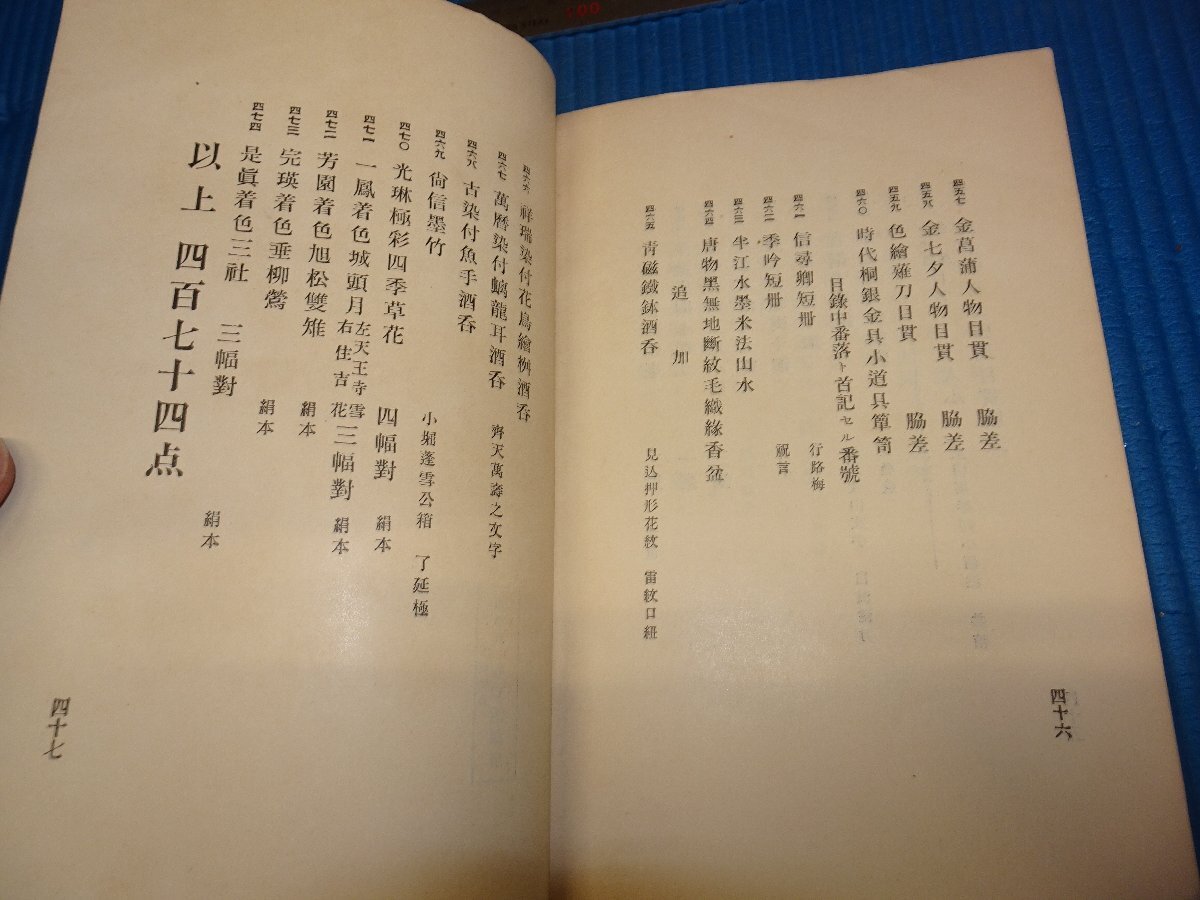 四五七 金菖蒲人物目貫 脇差
四五八 金七夕人物目貫 脇差
四五九 色繪薙刀目貫 脇差
四六〇 時代桐銀金具小道具簞笥
目錄中番落ト首記セル番號
四六一 信尋卿短册 行路梅
四六二 季吟短册 祝言
四六三 半江水墨米法山水
四六四 唐物黑無地斷紋毛織緣香盆
追加
四六五 靑磁鐵鉢酒呑 見込押形花紋 雷紋口紐
四十六
四六六 祥瑞染付花鳥繪桝酒呑
四六七 萬曆染付螭龍耳酒呑 齊天萬壽之文字
四六八 古染付魚手酒呑
四六九 尙信墨竹 小堀蓬雪公箱 了延極
四七〇 光琳極彩四季草花 四幅對 絹本
四七一 一鳳着色城頭月 左天王寺雪 右住吉花 三幅對 絹本
四七二 芳園着色旭松雙雉 絹本
四七三 完瑛着色垂柳鶯 絹本
四七四 是眞着色三社 三幅對 絹本
以上 四百七十四点
四十七